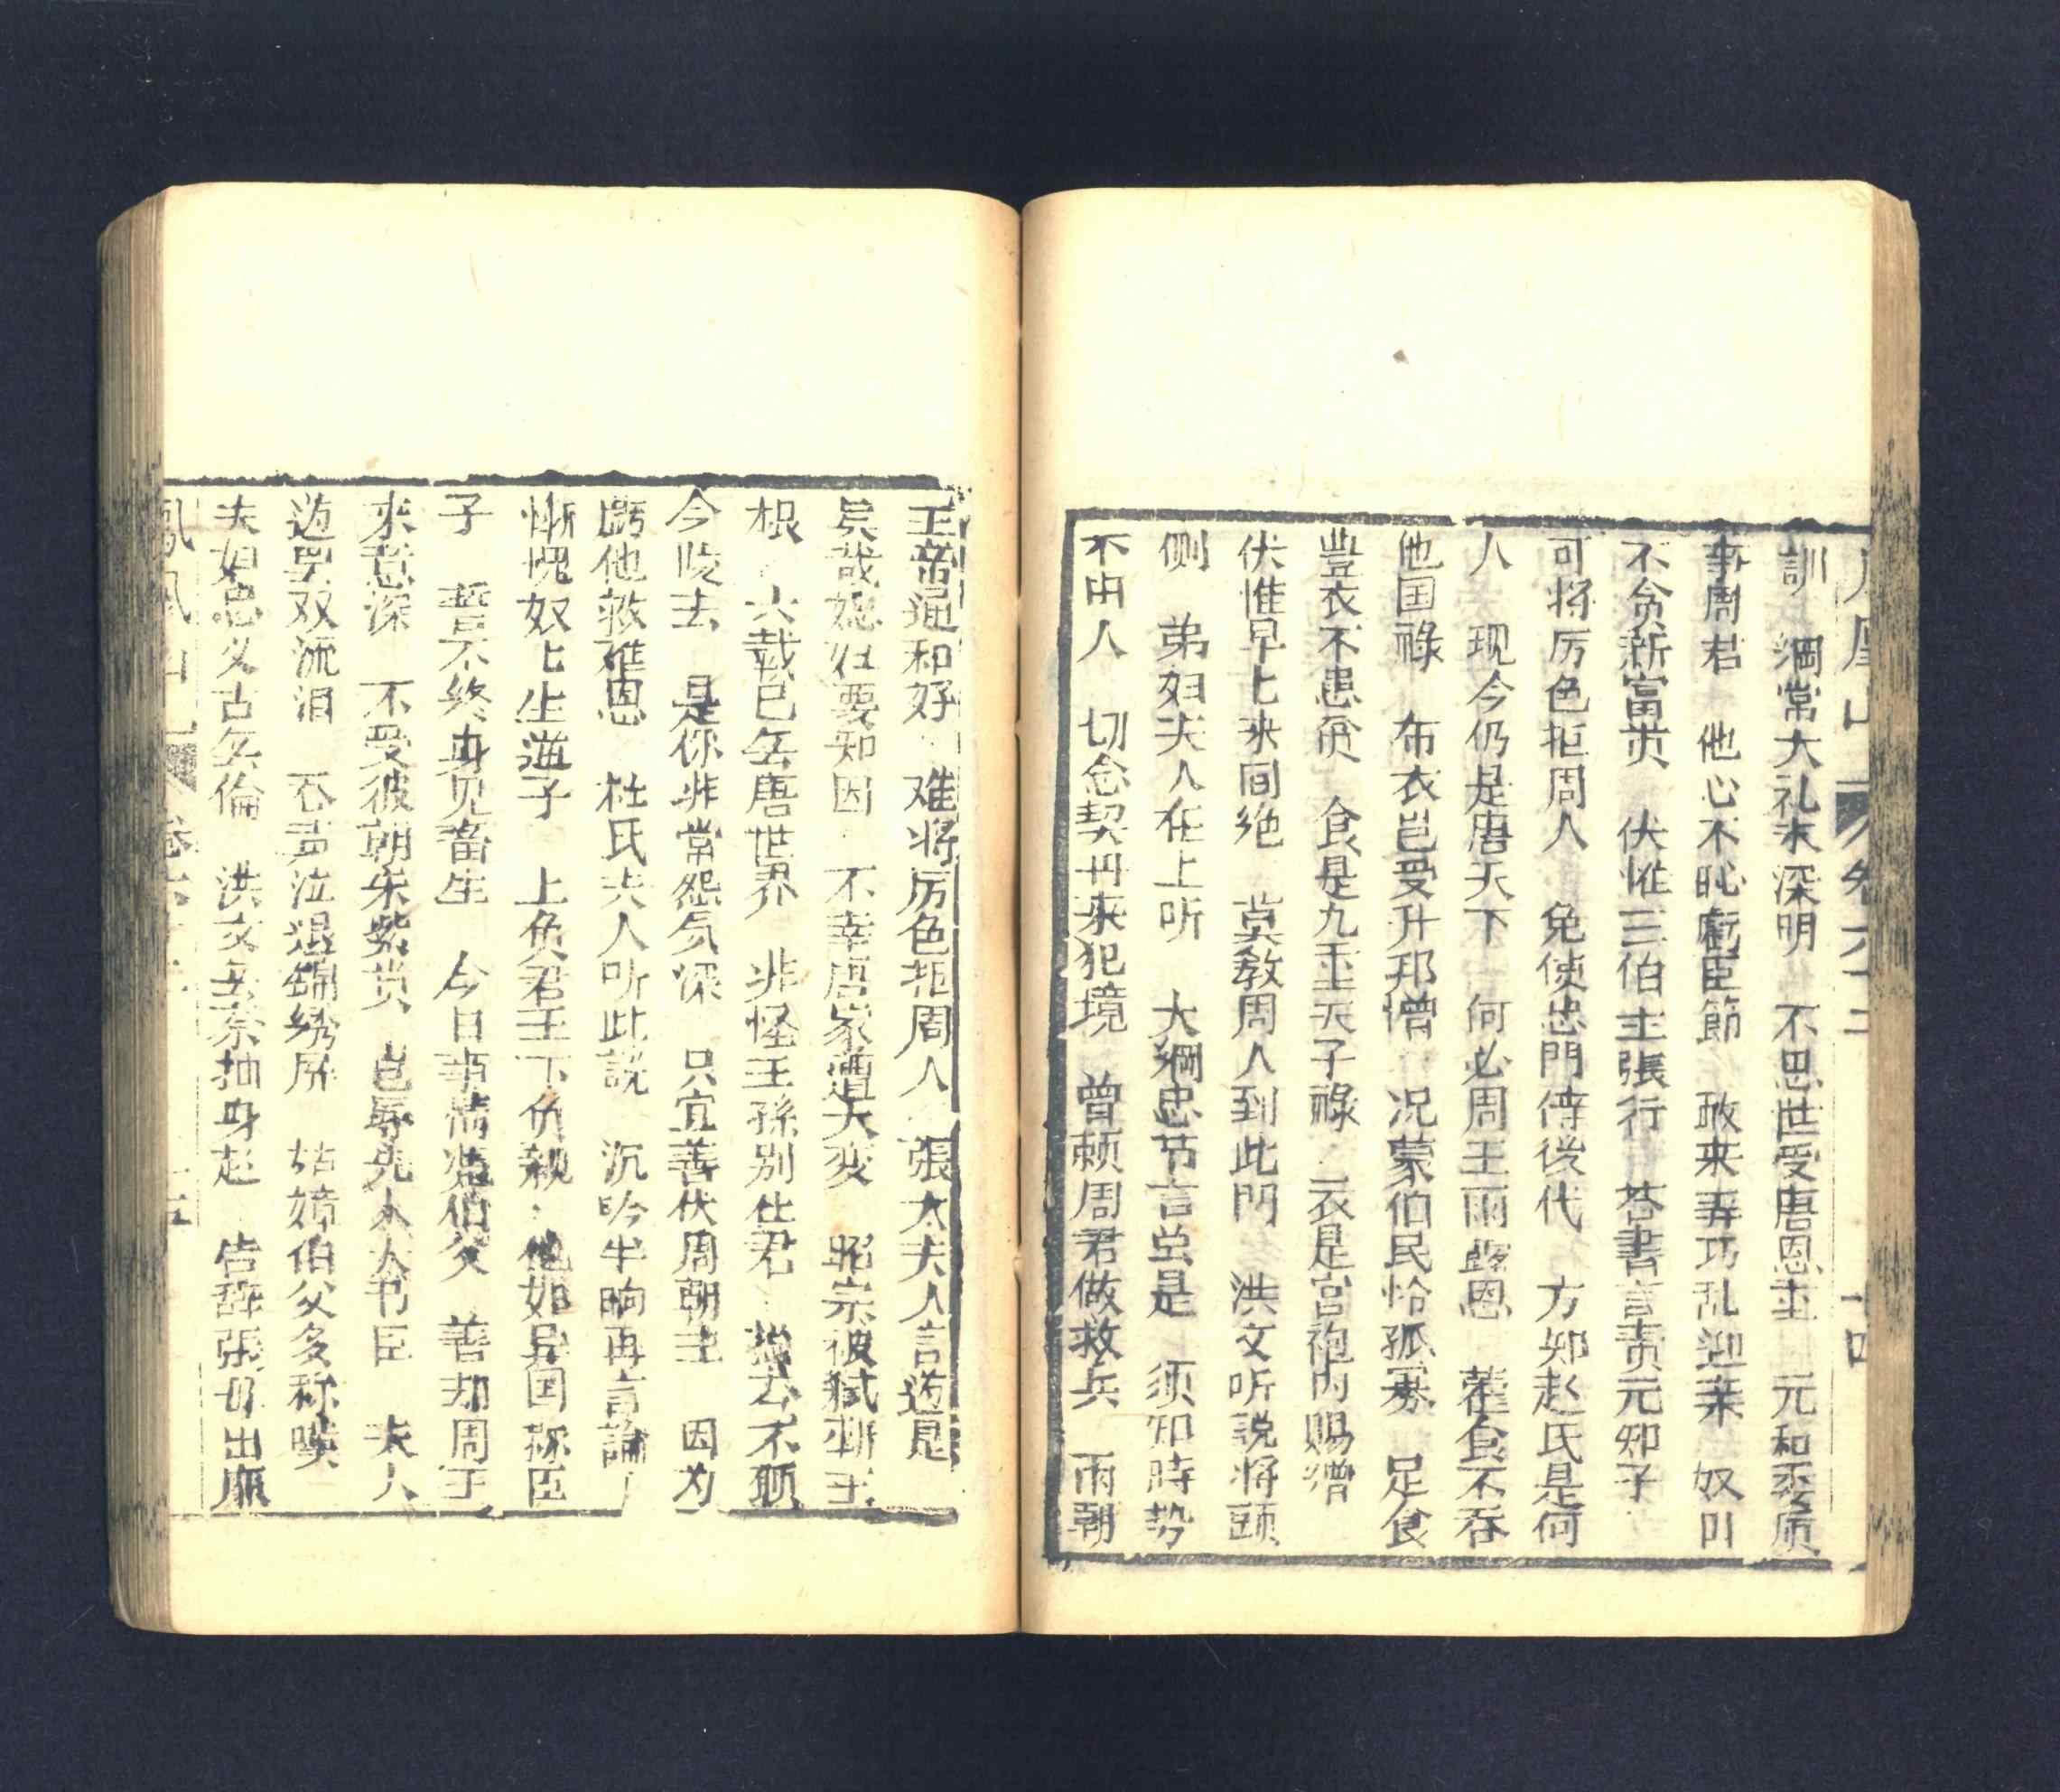 訓　綱常大礼未深明　不思世受唐恩重　元和丕质
事周君　他心不恥虧臣節　敢来弄巧乱迎亲　奴口
不貪新富贵　伏惟三伯主張行　荅書言責元卿子
可将厉色拒周人　免使忠門侍後代　方知赵氏是何
人　现今仍是唐天下　何必周王雨露恩　菫食不吞
他国祿　布衣岂受升邦憎　况蒙伯民恰孤寡　足食
豊衣不患贫　食是九重天子祿　衣是宫袍内賜繒
伏惟早匕来囬绝　莫教周人到此門　洪文听説将頭
侧　弟妇夫人在上听　大綱忠节言虽是　须知時势
不由人　切念契丹来犯境　曾赖周君做救兵　兩朝
王帝通和好　难将厉色拒周人　張太夫人言道是
矣哉媳妇要知因　不幸唐家遭大变　昭宗被弑断王
根　六載已無唐世界　非怪王孫别仕君　去不顾
今时去　是你非常怨気深　只宜善伏周朝主　因为
虧他救难恩　杜氏夫人听此説　沉吟半晌再言論
惭愧奴匕生逆子　上负君王下负親　他如异国称臣
子　誓不終身见畜生　今日事情凭伯父　善却周王
来意深　不受彼朝朱紫贵　岂辱先人大书臣　夫人
道罢双流泪　吞声泣退錦绣屏　姑嫜伯父多称嘆
夫妇忠义古無倫　洪文無奈抽身起　告辞張母出廳
鳳凰山　卷六十二　十五